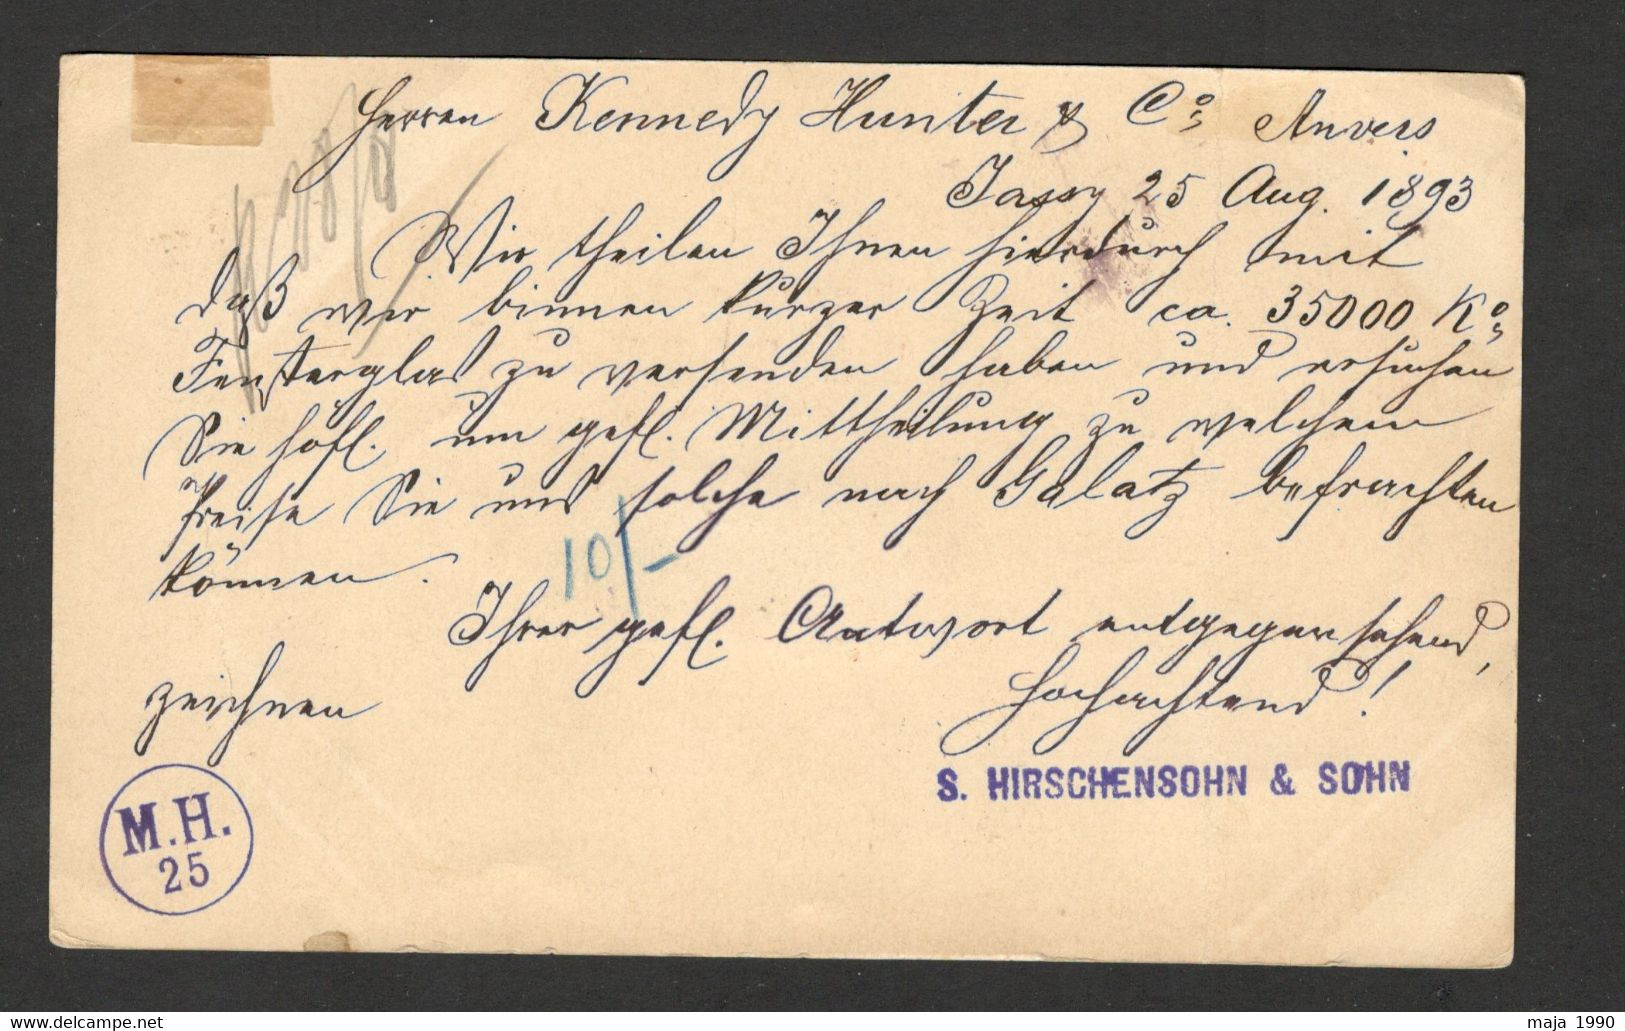 Herren Kennedy Hunter & Co Anvers
Jassy 25 Aug. 1893
Wir theilen Ihnen hierdurch mit
daß wir binnen kurzer Zeit ca. 35000 Ko
Fensterglas zu versenden haben und ersuchen
Sie höfl. um gefl. Mittheilung zu welchem
Preise Sie uns solche nach Galatz befrachten
können.
10/-
Ihrer gefl. Antwort entgegensehend,
zeichnen Hochachtend!
S. HIRSCHENSOHN & SOHN
M.H.
25
maja 1990